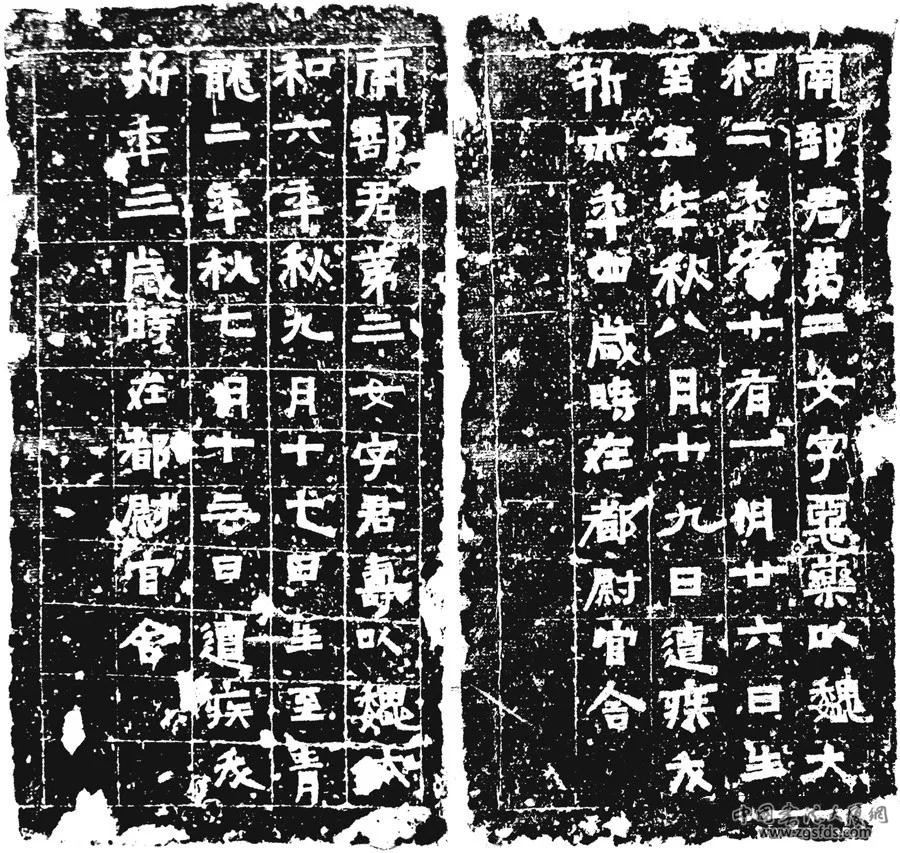 南部君第二女字惡藥以魏大
和二年冬十有一月廿六日生
至五年秋八月十九日遭疾夭
折亦年四歲時在都尉官舍
南部君第三女字君壽以魏大
和六年秋九月十七日生至青
龍二年秋七月十日遭疾夭
折年三歲時在都尉官舍
www.zgsfds.com